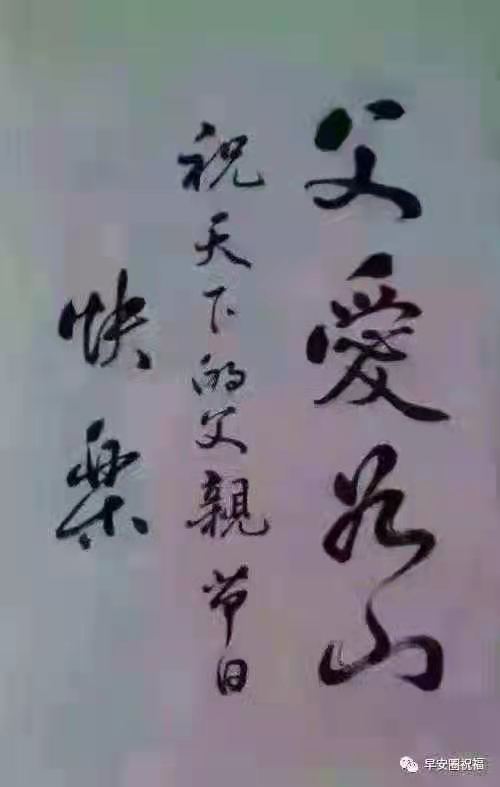 父愛如山
祝天下的父親节日
快樂
早安圈祝福